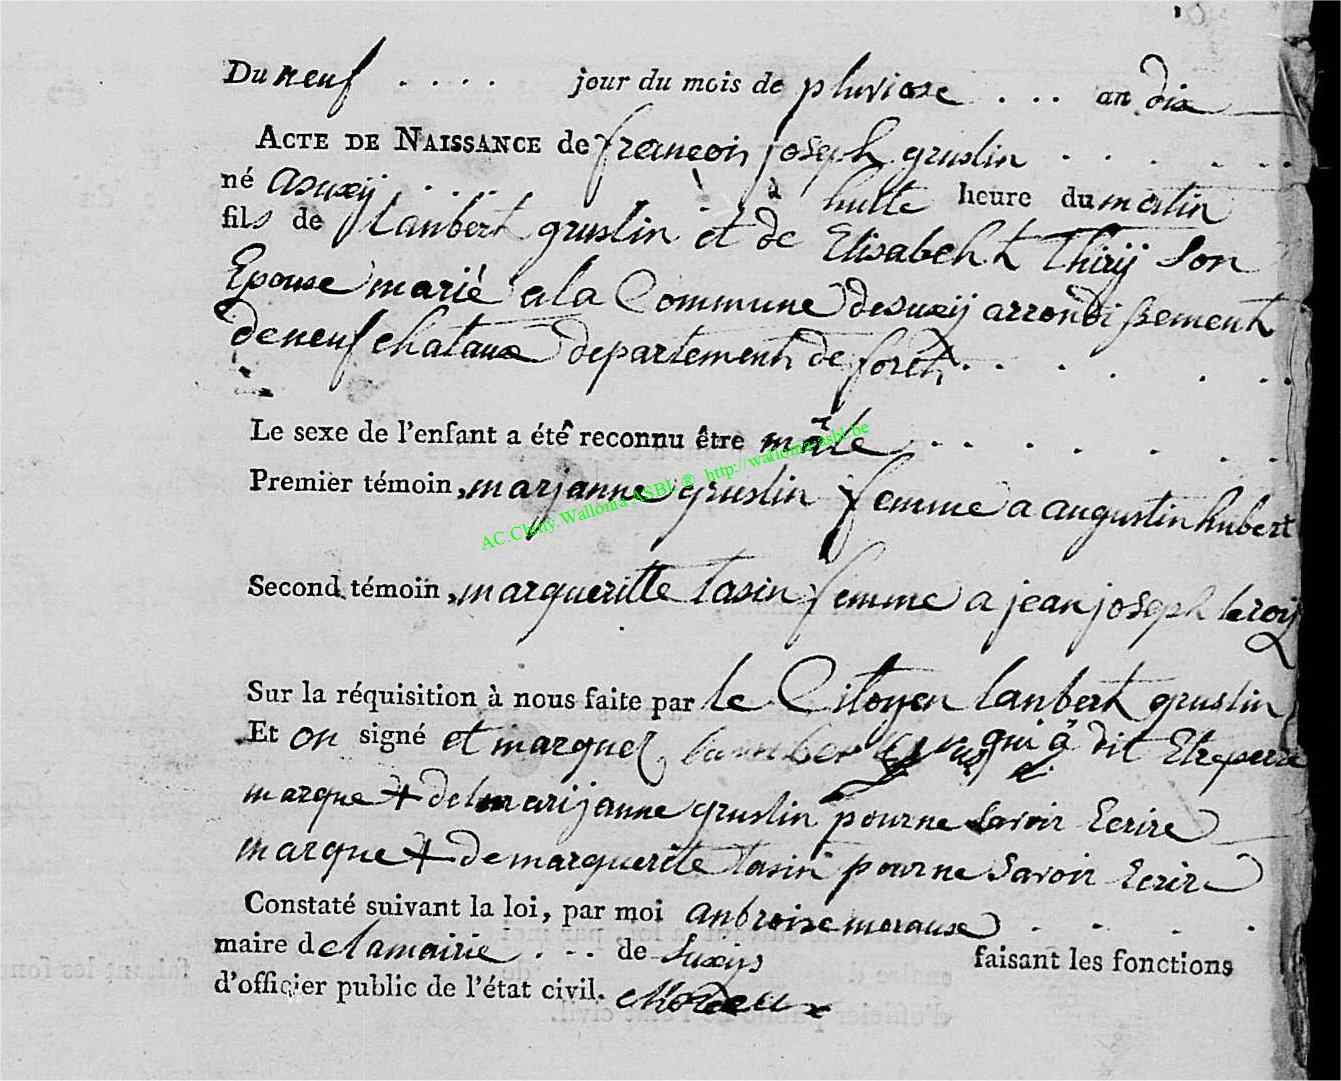 Du neuf . . . . jour du mois de pluviose . . . an dix
ACTE DE NAISSANCE de francois joseph gruslin . . . . . .
né a suxÿ . . . . à huitte heure du matin
fils de lanbert gruslin et de Elisabeht thirÿ son
Epouse marié a la Commune de suxÿ arrondissement
de neuf chataux departement de foreth . . . . . .
Le sexe de l'enfant a été reconnu être mâle . . . . . . .
Premier témoin, marjanne gruslin femme a augustin hubert
Second témoin, margueritte tasin femme a jean joseph leroÿ
Sur la réquisition à nous faite par le Citoyen lanbert gruslin
Et on signé et marquez qui a dit Etre perre
marque + de marijanne gruslin pour ne savoir Ecrire
marque + de marguerite tasin pour ne savoir Ecrire
Constaté suivant la loi, par moi anbroise moraux . . . .
maire de la mairie . . . de Suxÿs faisant les fonctions
d'officier public de l'état civil. Moreaux
AC.Chiny.Wallonia ASBL © http://wallonia-asbl.be